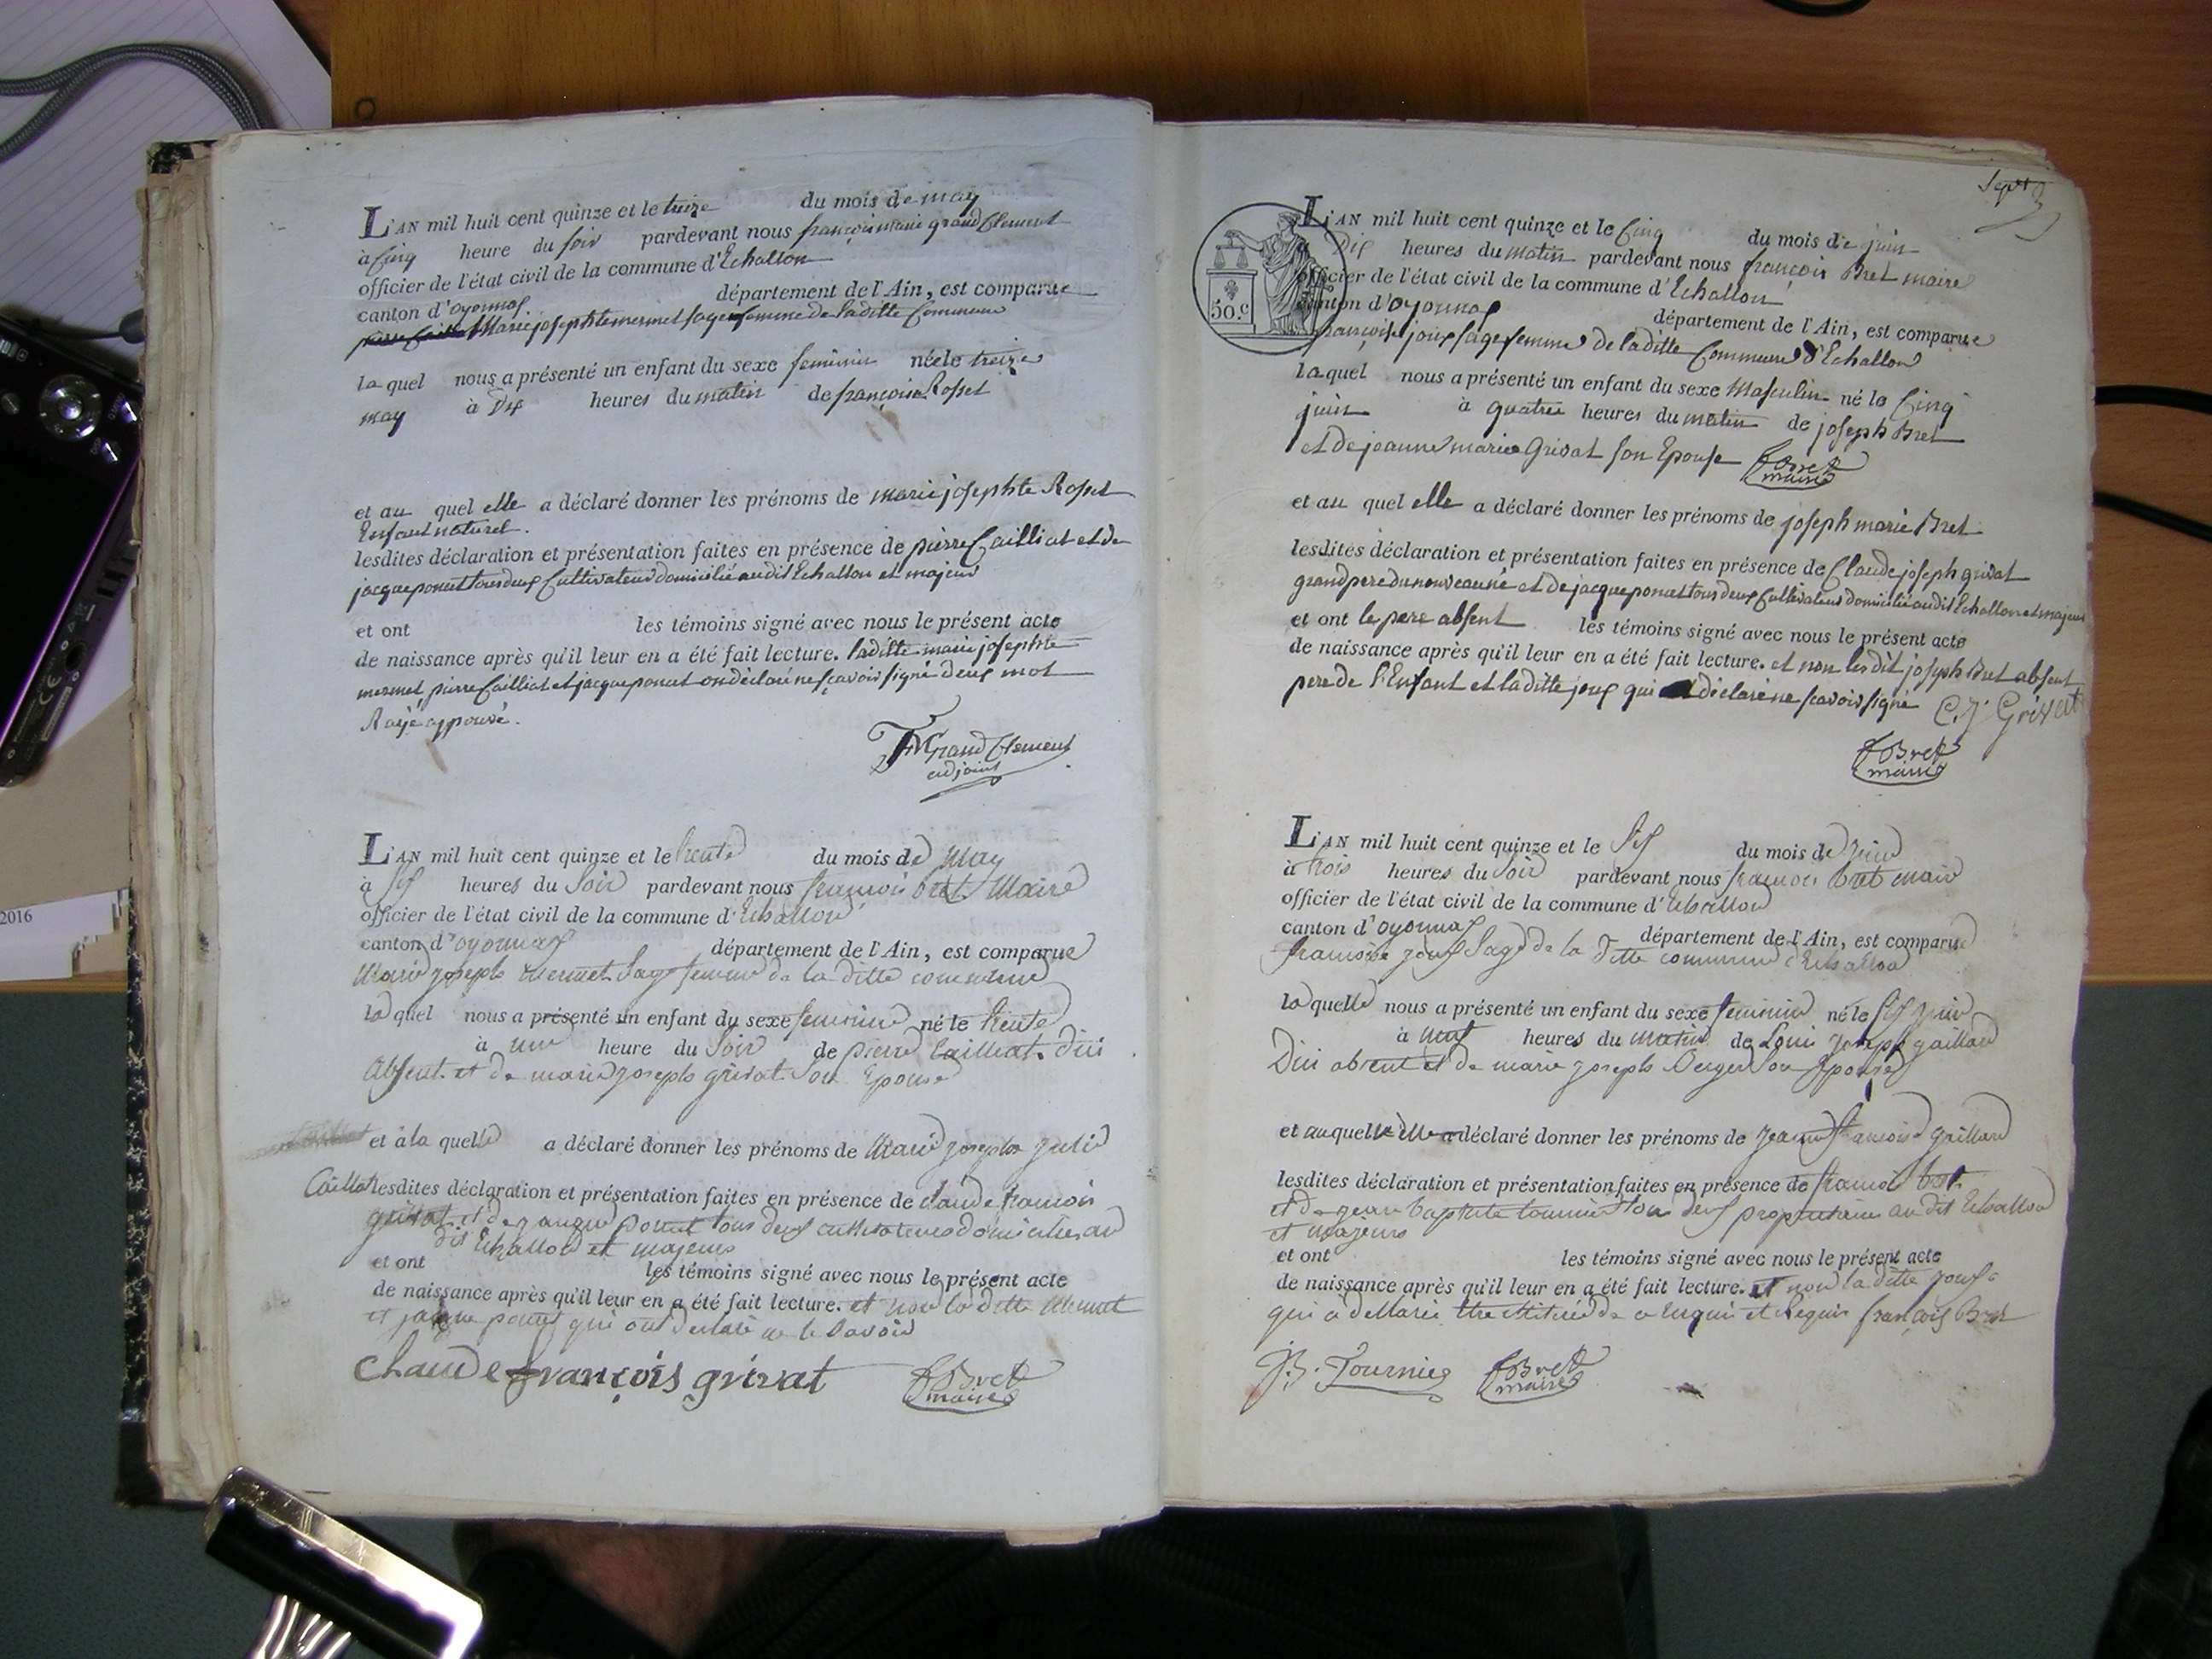 L'AN mil huit cent quinze et le treize du mois de may
à Cinq heure du soir pardevant nous françois marie grandClement
officier de l'état civil de la commune d'Echallon
canton d'oyonnax département de l'Ain, est comparue
Marie josephte mermet sage femme de laditte Commune
laquel nous a présenté un enfant du sexe feminin née le treize
may à Dix heures du matin de françoise Rosset
et au quel elle a déclaré donner les prénoms de marie josephte Rosset
Enfant naturel.
lesdites déclaration et présentation faites en présence de pierre Cailliat et de
jacque poncet tous deux Cultivateur domicilié audit Echallon et majeur
et ont les témoins signé avec nous le présent acte
de naissance après qu'il leur en a été fait lecture. laditte marie josephte
mermet pierre Cailliat et jacque poncet on déclaré ne sçavoir signé deux mot
Rayé approuvé.
FM GrandClement
adjoint
L'AN mil huit cent quinze et le trente du mois de may
à six heures du soir pardevant nous francois bret Maire
officier de l'état civil de la commune d'Echallon
canton d'oyonnax département de l'Ain, est comparue
Marie joseph mermet sage femme de la ditte commune
laquel nous a présenté un enfant du sexe feminin né le trente
à une heure du soir de pierre Cailliat dici
Absent et de marie joseph grivat son Epouse
et à la quelle a déclaré donner les prénoms de Marie josephe julie
Caillat lesdites déclaration et présentation faites en présence de claude francois
grivat et de jacque poncet tous deux cultivateurs domicilies au
dit Echallon et majeurs
et ont les témoins signé avec nous le présent acte
de naissance après qu'il leur en a été fait lecture. et non la ditte Mermet
et jacque poncet qui ont declaré ne le savoir
Chaude françois grivat
F Bret
maire
Sept
50.c
L'AN mil huit cent quinze et le Cinq du mois de juin
à Dix heures du matin pardevant nous françois Bret maire
officier de l'état civil de la commune d'Echallon
canton d'oyonnax département de l'Ain, est comparue
françoise joux sage femme de laditte Commune d'Echallon
laquel nous a présenté un enfant du sexe Masculin né le Cinq
juin à quatre heures du matin de joseph Bret
et de jeanne marie Grivat son Epouse F Bret
maire
et au quel elle a déclaré donner les prénoms de joseph marie Bret
lesdites déclaration et présentation faites en présence de Claude joseph grivat
grand pere du nouveau né et de jacque poncet tous deux Cultivateur domicilié audit Echallon et majeur
et ont le pere absent les témoins signé avec nous le présent acte
de naissance après qu'il leur en a été fait lecture. et non lesdit joseph Bret absent
pere de l'Enfant et laditte joux qui déclaré ne scavoir signé C.J Grivat
F Bret
maire
L'AN mil huit cent quinze et le six du mois de juin
à trois heures du soir pardevant nous francois bret maire
officier de l'état civil de la commune d'Echallon
canton d'oyonnax département de l'Ain, est comparue
francoise joux sage de la ditte commune d'Echallon
laquelle nous a présenté un enfant du sexe feminin né le six juin
à neuf heures du matin de Loui joseph gaillard
Dici absent et de marie joseph Berger son Epouse
et auquelle elle a déclaré donner les prénoms de jeanne francoise gaillard
lesdites déclaration et présentation faites en présence de francois bret
et de jean baptiste tournier tous deux proprietaires au dit Echallon
et majeurs
et ont les témoins signé avec nous le présent acte
de naissance après qu'il leur en a été fait lecture. et non la ditte joux
qui a de ce enquis et requis françois Bret
JB. Tournier F Bret
maire
2016